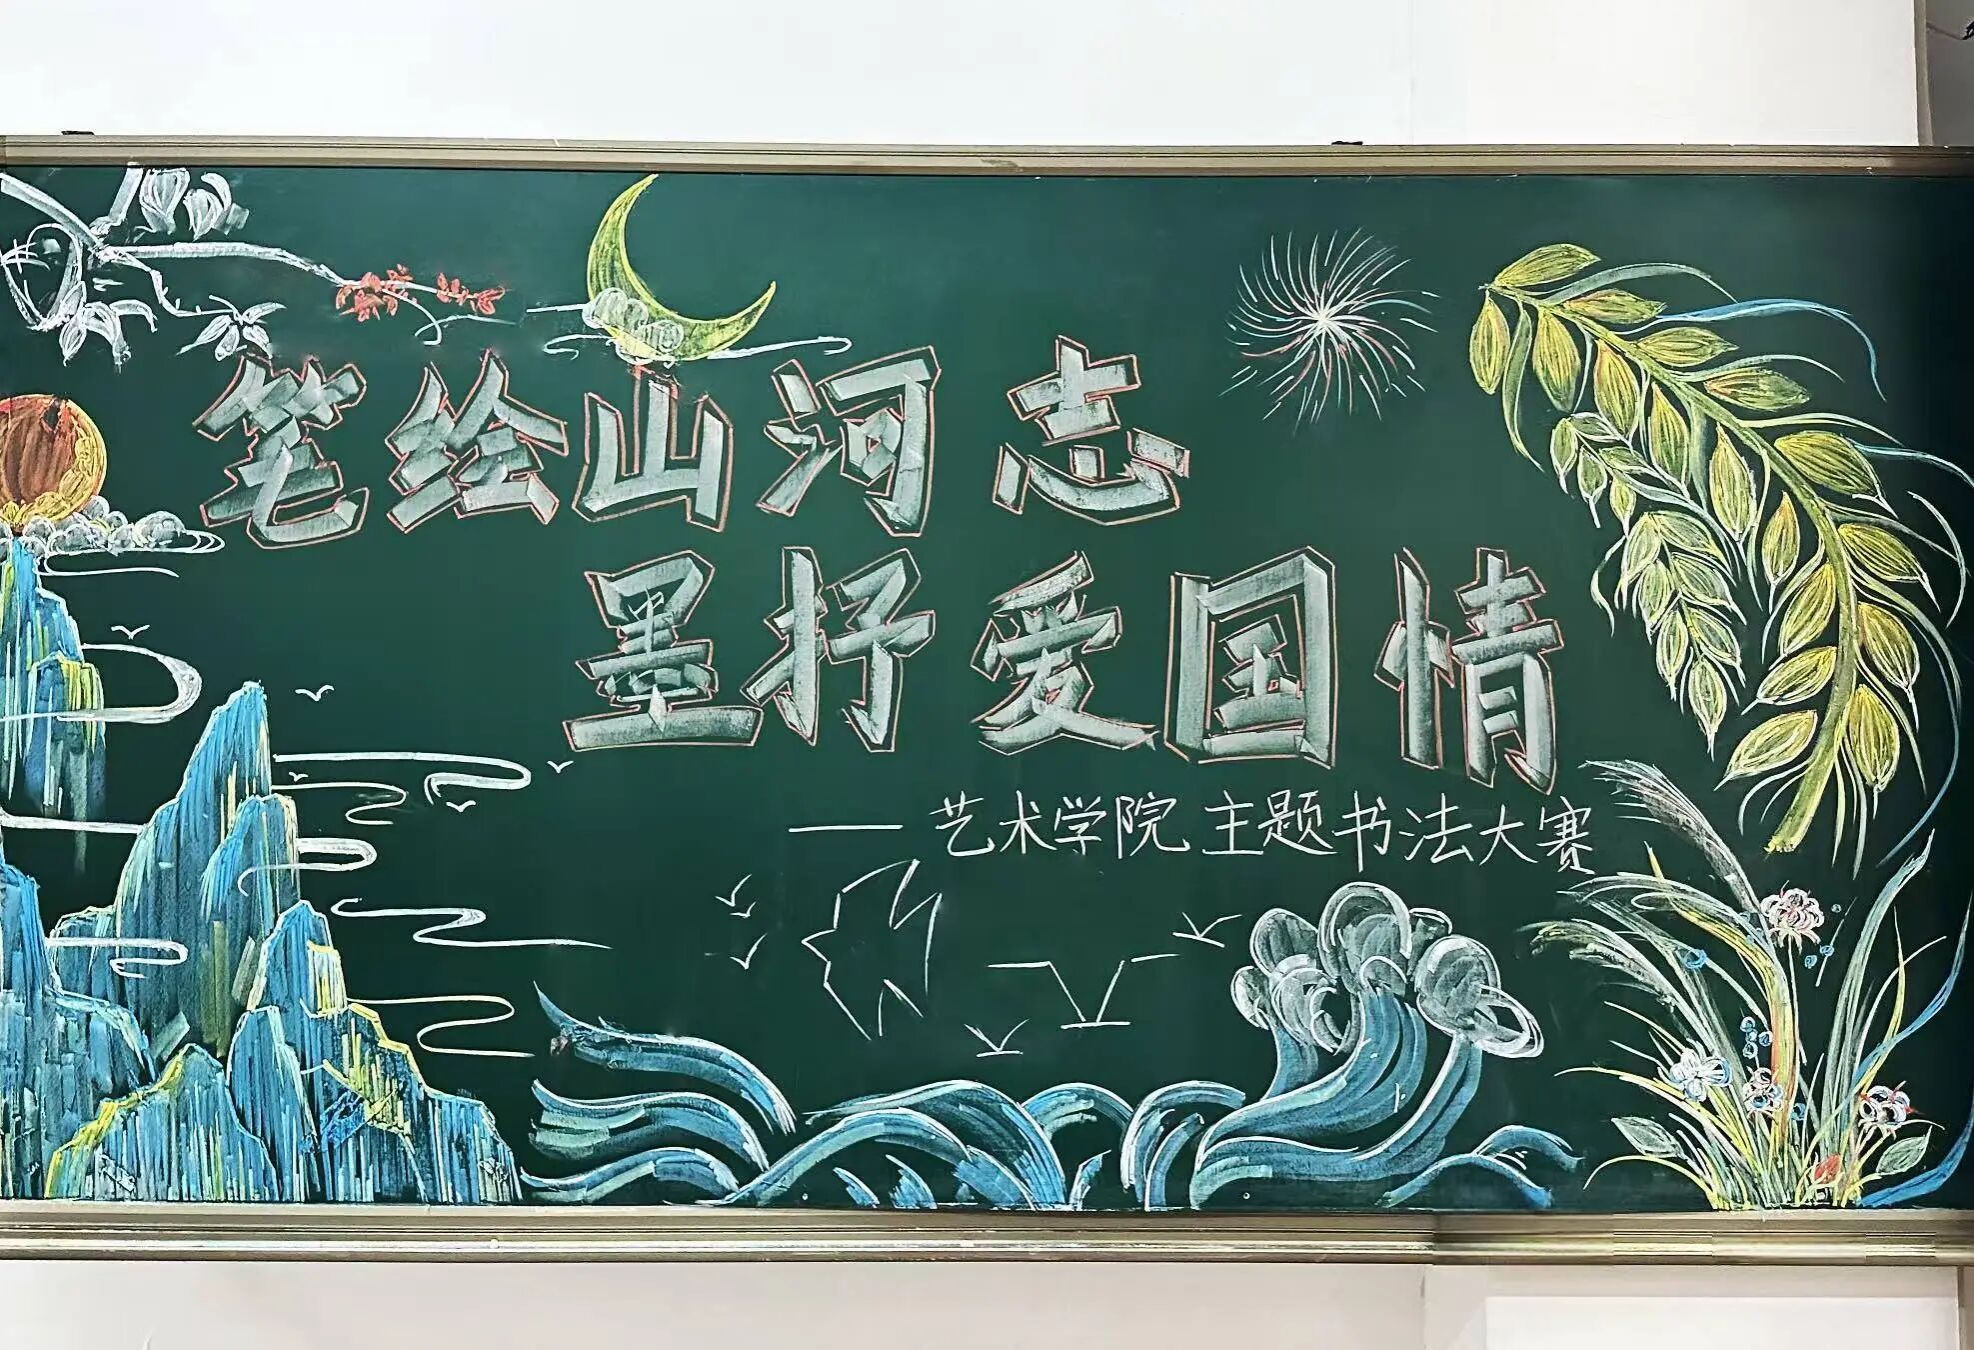 笔绘山河志
墨抒爱国情
——艺术学院主题书法大赛